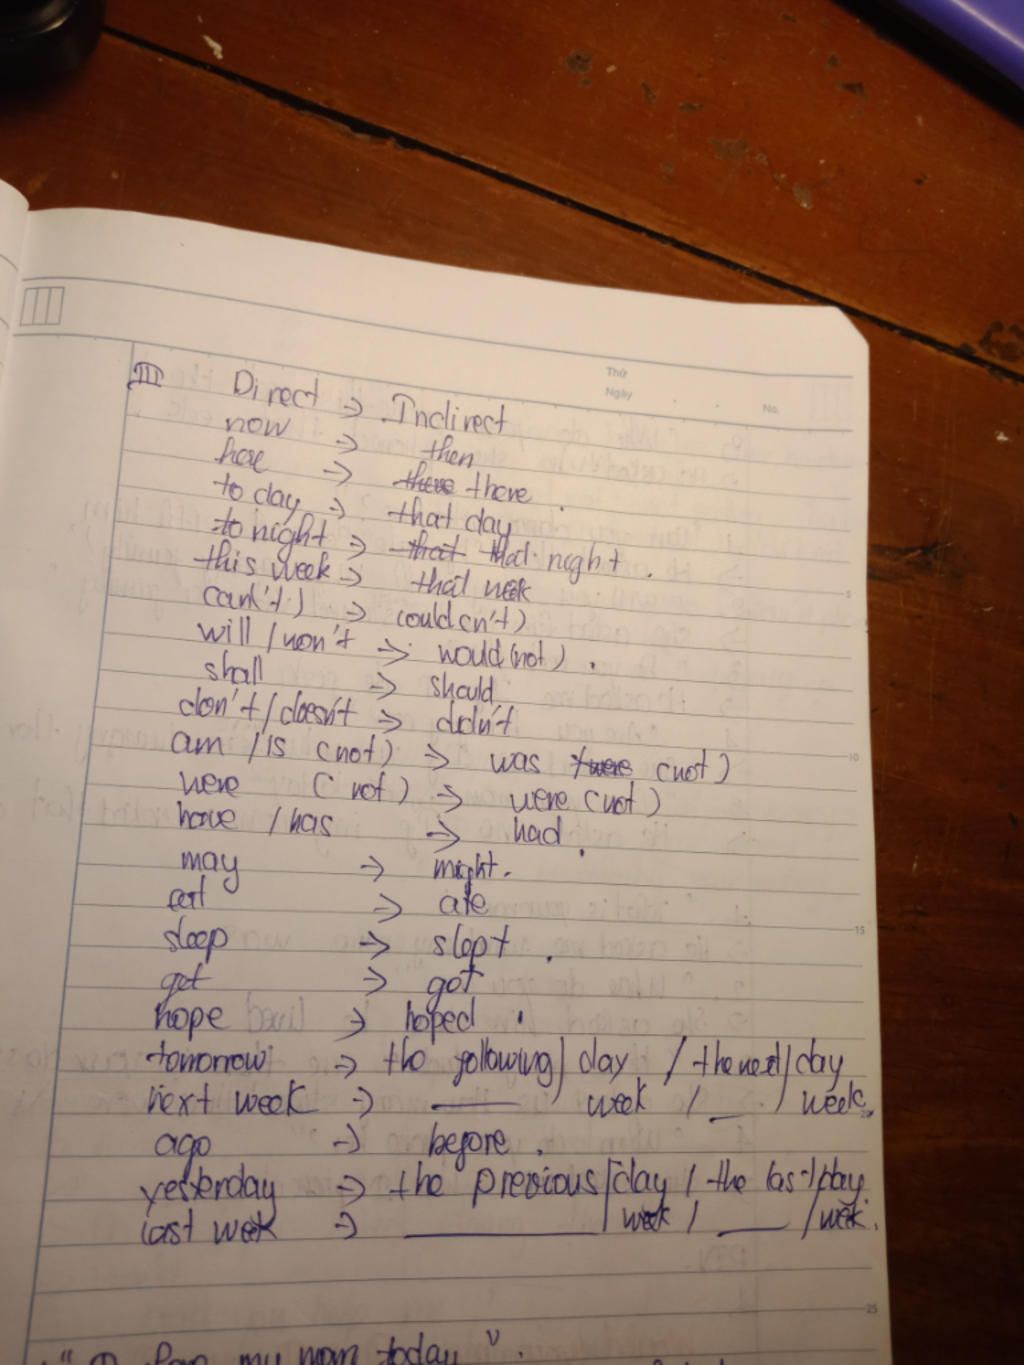 Thứ
Ngày
No.
III Direct -> Indirect
now -> then
here -> there there.
today -> that day
tonight -> that that night.
this week -> that week
can('t) -> could(n't)
will / won't -> would (not).
shall -> should
don't / doesn't -> didn't
am / is (not) -> was / were (not)
were (not) -> were (not)
have / has -> had.
may -> might.
eat -> ate
sleep -> slept.
get -> got
hope -> hoped.
tomorrow -> the following / day / the next / day
next week -> ____ week / __ / week.
ago -> before.
yesterday -> the previous / day / the last / day.
last week -> ____ / week / ____ / week.
my mom today".
5
10
15
25